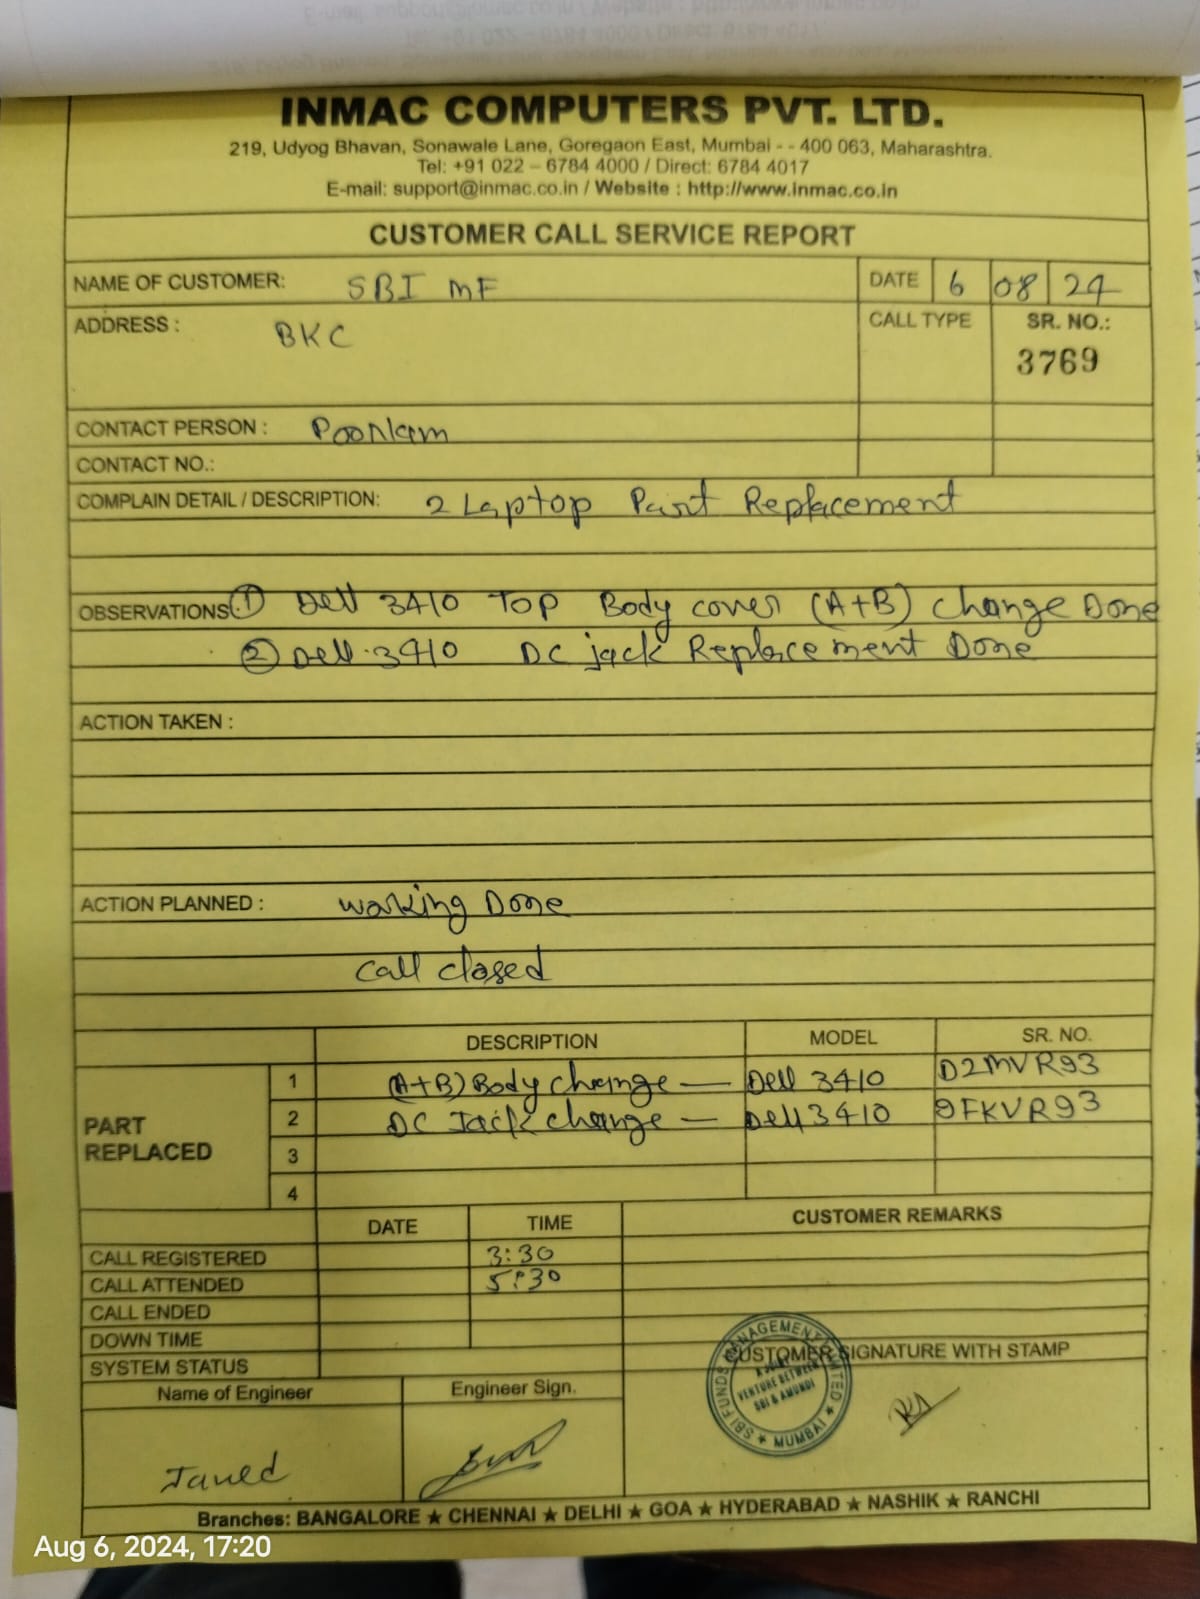 INMAC COMPUTERS PVT. LTD.
219, Udyog Bhavan, Sonawale Lane, Goregaon East, Mumbai - - 400 063, Maharashtra.
Tel: +91 022 – 6784 4000 / Direct: 6784 4017
E-mail: support@inmac.co.in / Website : http://www.inmac.co.in
CUSTOMER CALL SERVICE REPORT
NAME OF CUSTOMER: SBI MF DATE 6 08 24
ADDRESS : BKC CALL TYPE SR. NO.:
3769
CONTACT PERSON : Poonam
CONTACT NO.:
COMPLAIN DETAIL / DESCRIPTION: 2 Laptop Part Replacement
OBSERVATIONS: ① Dell 3410 TOP Body cover (A+B) change Done
② Dell 3410 DC jack Replacement Done
ACTION TAKEN :
ACTION PLANNED : Working Done
Call closed
DESCRIPTION MODEL SR. NO.
PART REPLACED
1 (A+B) Body change — Dell 3410 D2MVR93
2 DC Jack change — Dell 3410 9FKVR93
3
4
DATE TIME CUSTOMER REMARKS
CALL REGISTERED 3:30
CALL ATTENDED 5:30
CALL ENDED
DOWN TIME
SYSTEM STATUS
CUSTOMER SIGNATURE WITH STAMP
SBI FUNDS MANAGEMENT LIMITED ★ MUMBAI ★
A JOINT
VENTURE BETWEEN
SBI & AMUNDI
Name of Engineer Engineer Sign.
Javed
Branches: BANGALORE ★ CHENNAI ★ DELHI ★ GOA ★ HYDERABAD ★ NASHIK ★ RANCHI
Aug 6, 2024, 17:20